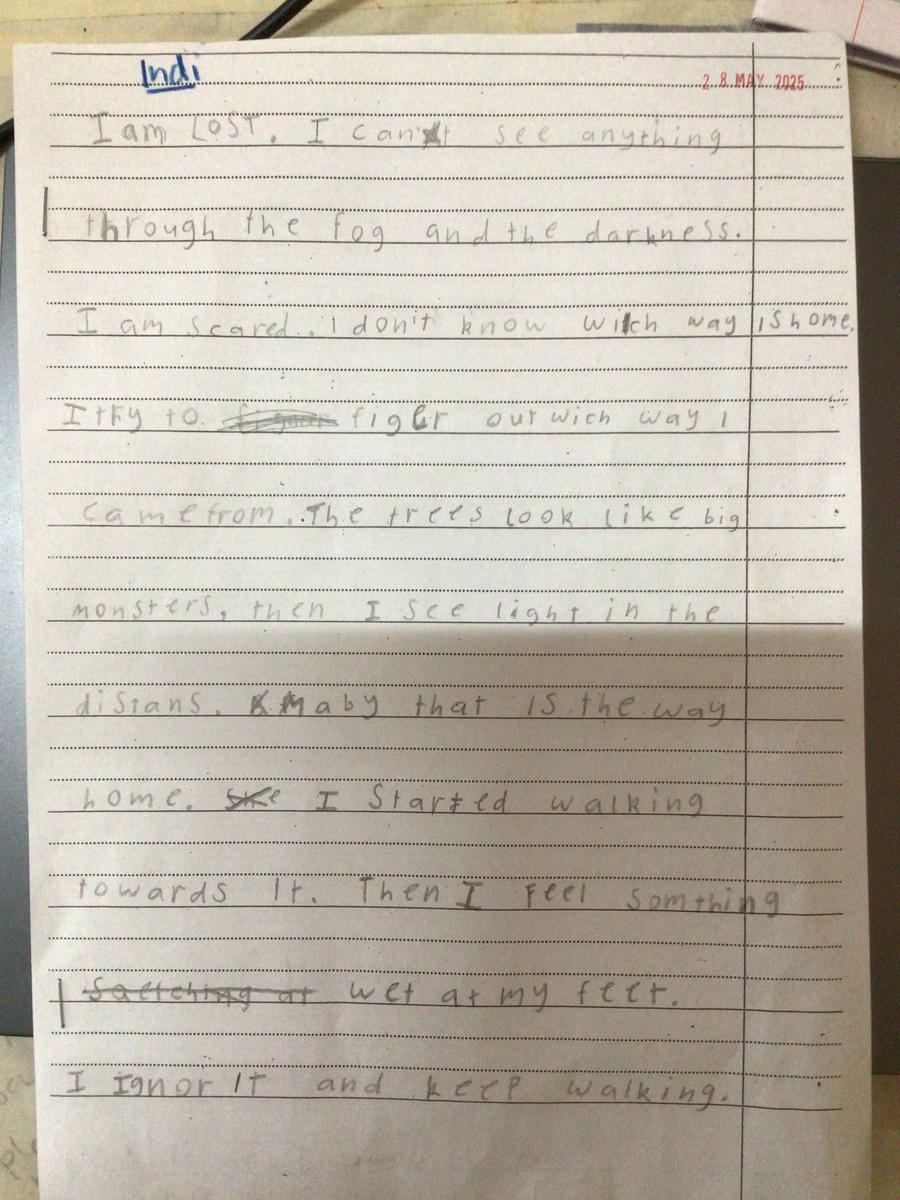 Indi
28 MAY 2025
I am LOST. I can't see anything
through the fog and the darkness.
I am scared. I don't know wich way is home.
I try to figer out wich way I
came from. The trees look like big
monsters, then I see light in the
distans. Maby that is the way
home. I Started walking
towards It. Then I Feel Somthing
wet at my feet.
I Ignor It and keep walking.